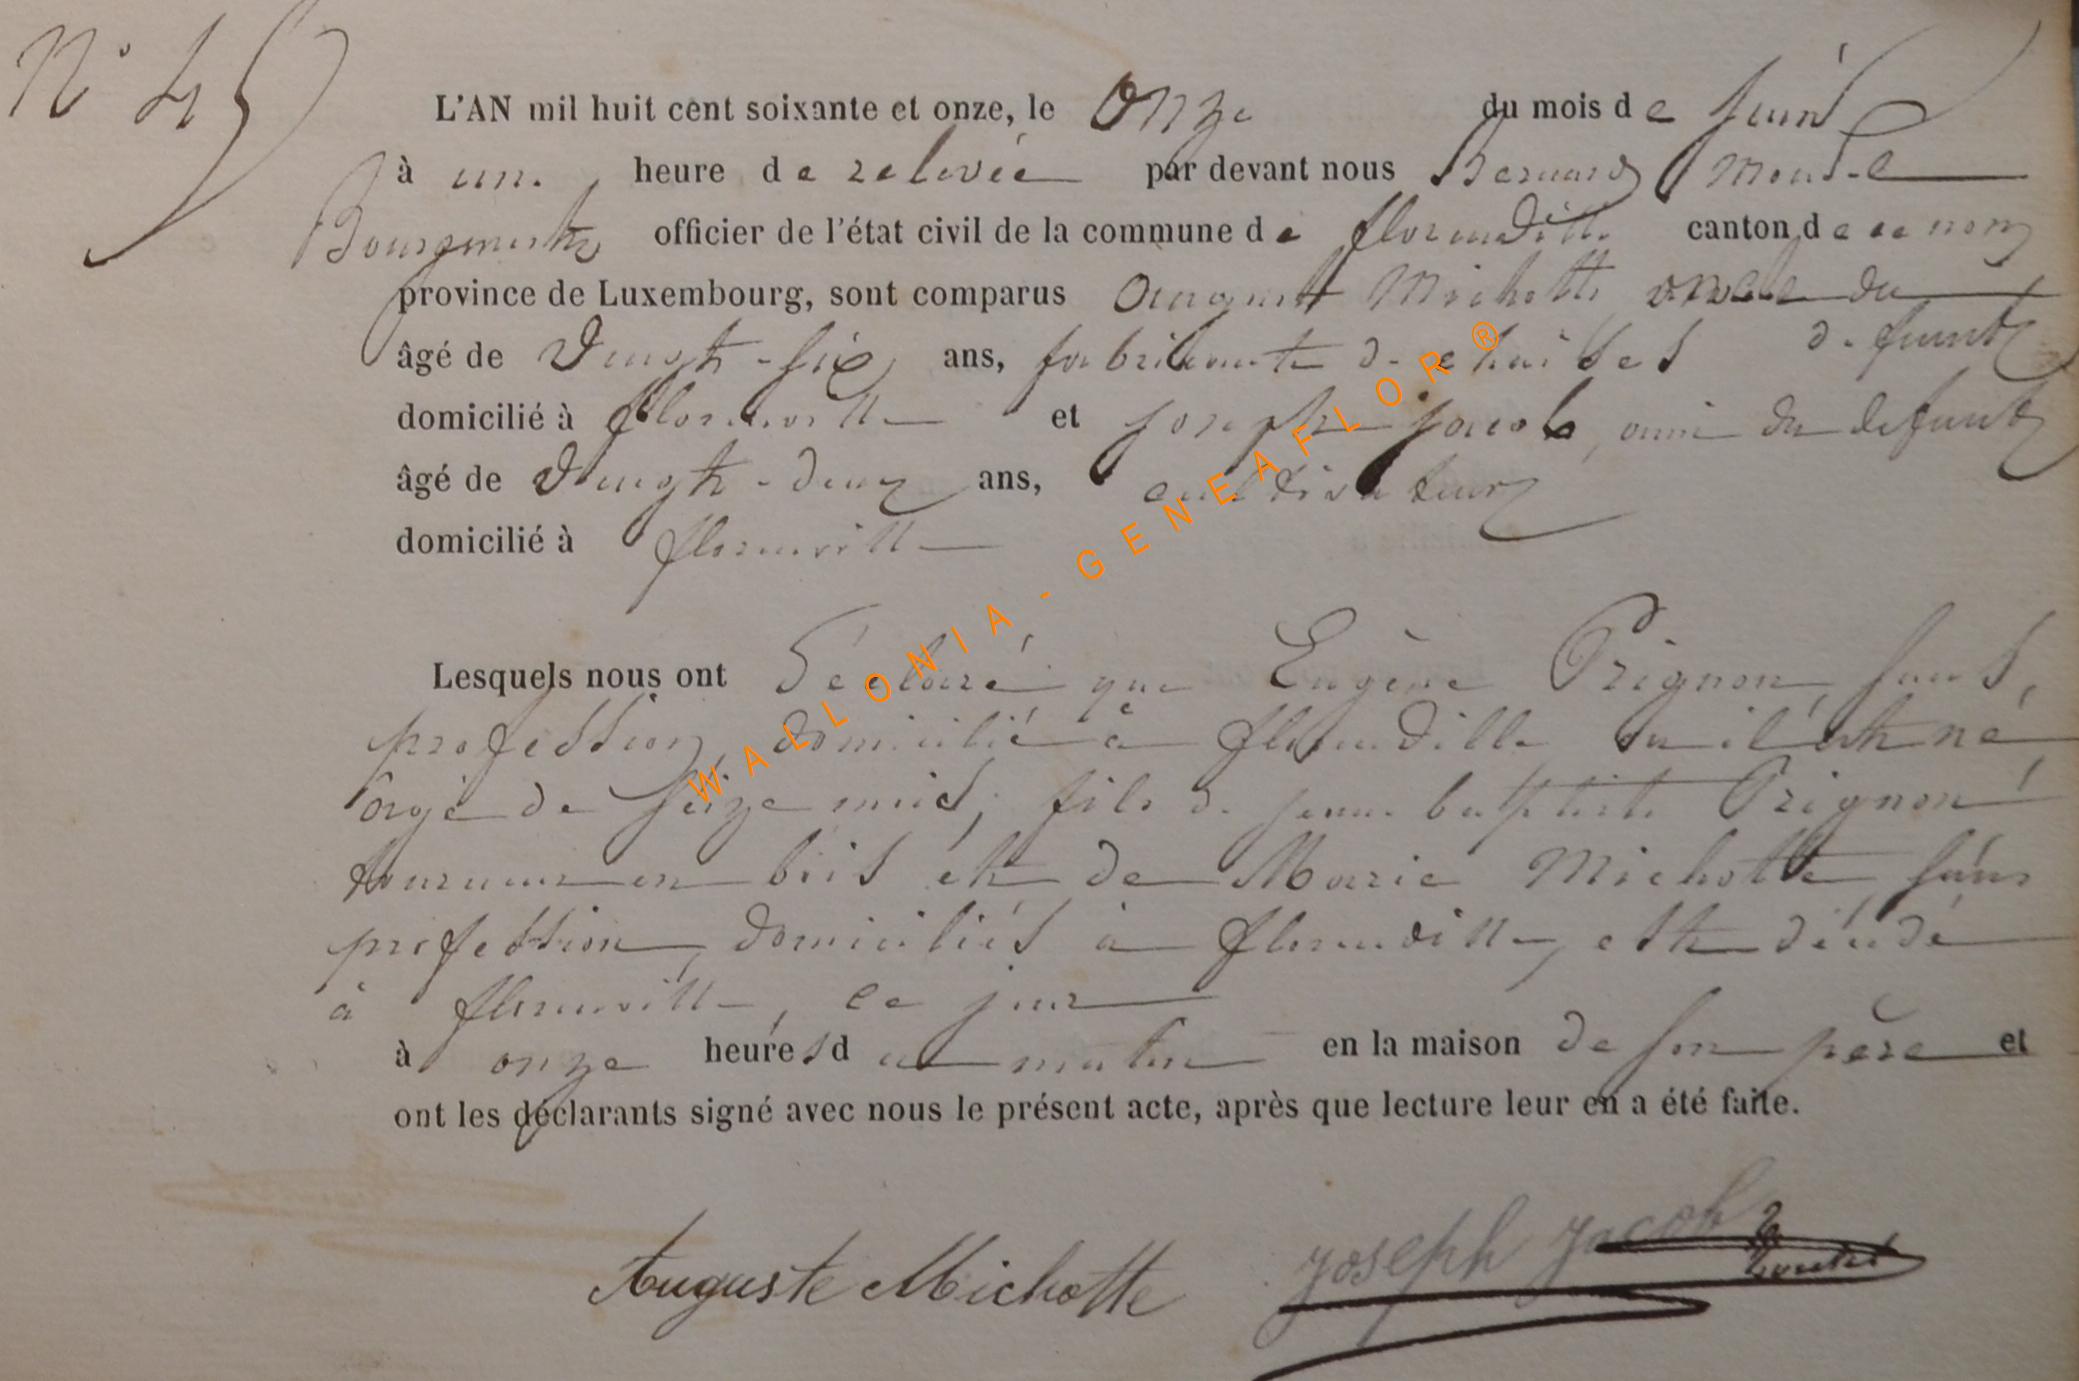 N° 45
L'AN mil huit cent soixante et onze, le onze du mois de juin
à une heure de relevée par devant nous Bernard
Bourgmestre officier de l'état civil de la commune de florenville canton de ce nom
province de Luxembourg, sont comparus Auguste Michotte, oncle du
défunt
âgé de vingt-six ans, fabricant de chaises
domicilié à florenville et joseph jacob, ami du defunt
âgé de vingt-deux ans, cultivateur
domicilié à florenville
Lesquels nous ont déclaré que Eugène Prignon, sans,
profession, domicilié à florenville où il est né,
âgé de seize mois, fils de jean baptiste Prignon,
tourneur en bois et de Marie Michotte, sans
profession, domiciliés à florenville, est décédé
à florenville, ce jour
à onze heures du matin en la maison de son père et
ont les déclarants signé avec nous le présent acte, après que lecture leur en a été faite.
Auguste Michotte joseph jacob
WALLONIA-GENEAFLOR®